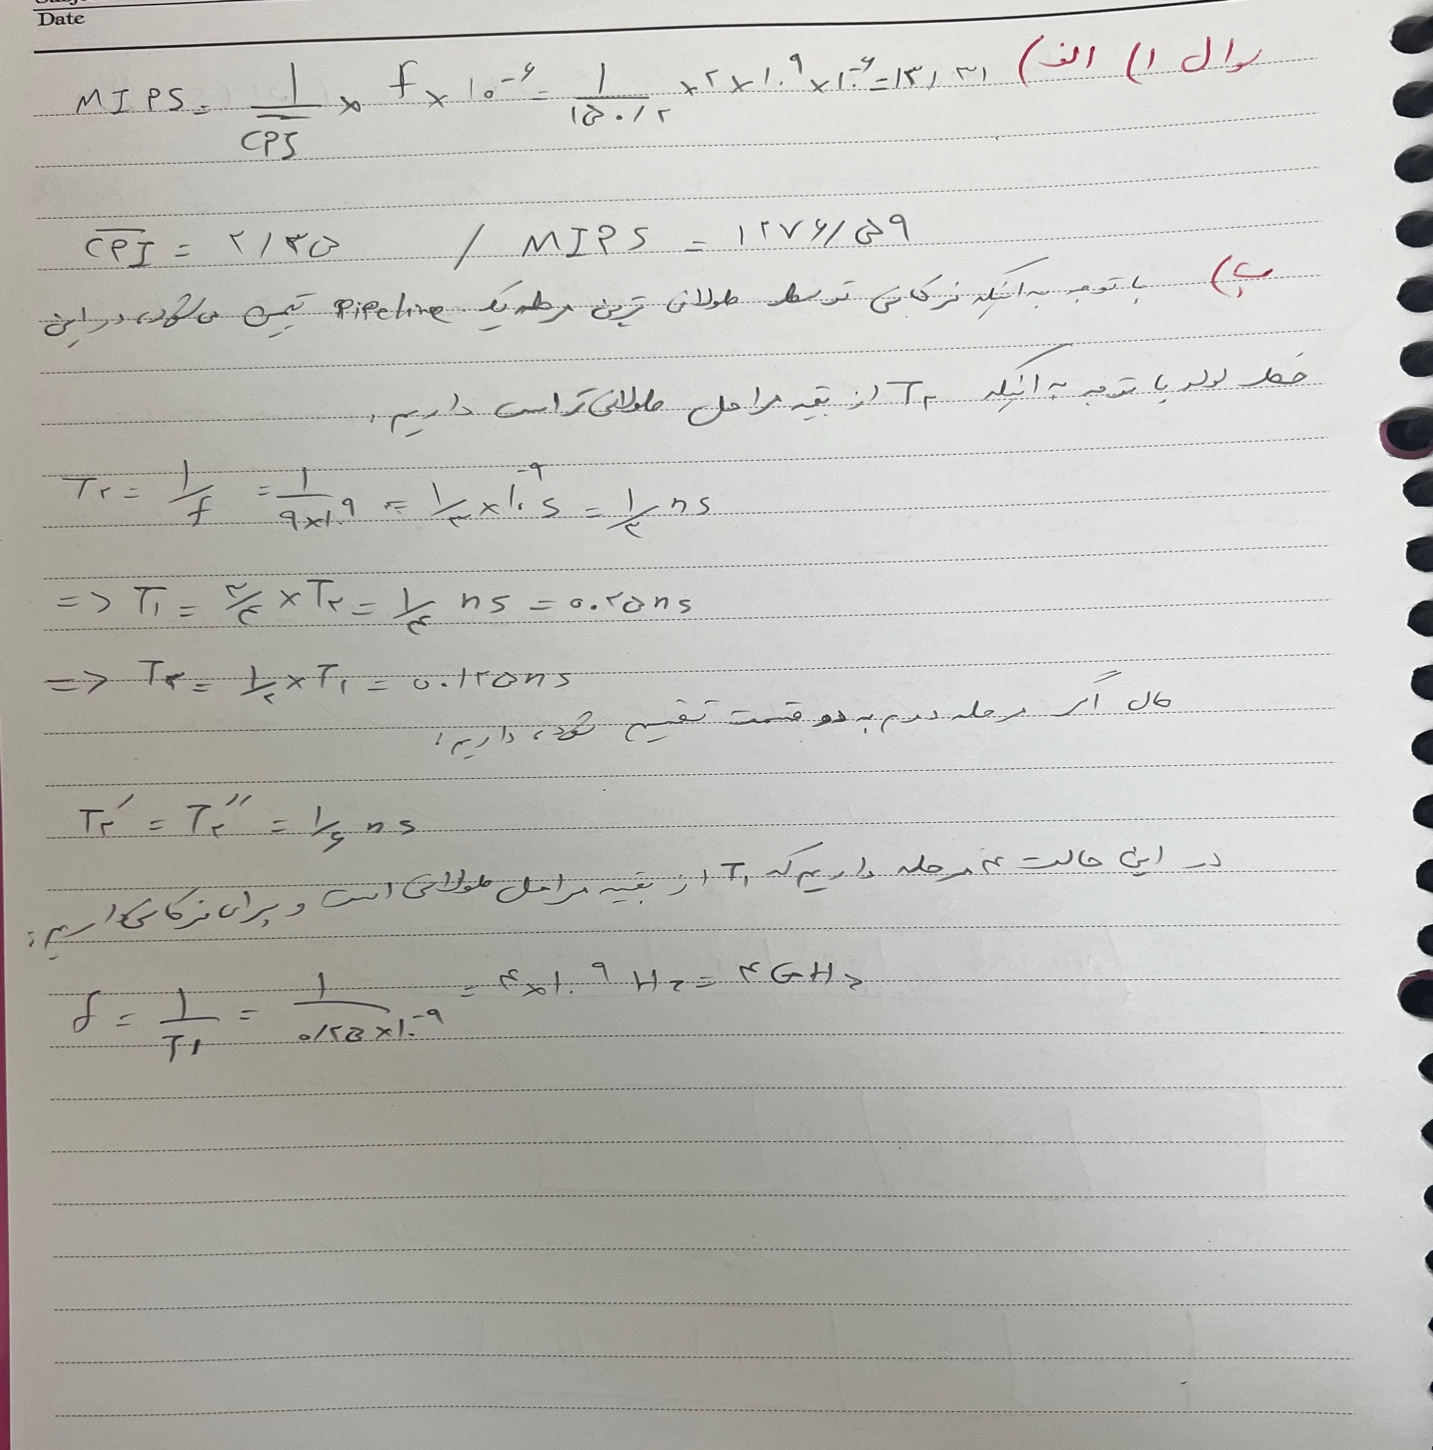 Date
سوال ۱) الف)
MIPS = 1/CPI × f × 10^-۶ = 1/۱۵۰/۲ × ۲ × ۱۰^۹ × ۱۰^-۶ = ۱۳/۳۱
CPI = ۲/۳۵ / MIPS = ۱۲۷۶/۵۹
ب) با توجه به اینکه فرکانس توسط طولانی ترین مرحله یک Pipeline تعیین می‌شود، در این
خط لوله با توجه به اینکه T۲ از بقیه مراحل طولانی تر است داریم:
T۲ = 1/f = 1/۹×۱۰^۹ = 1/۳ × ۱۰^-۹ s = 1/۳ ns
=> T۱ = ۳/۴ × T۲ = 1/۴ ns = ۰.۲۵ns
=> T۳ = 1/۲ × T۱ = ۰.۱۲۵ns
حال اگر مرحله دوم به دو قسمت تقسیم شود، داریم:
T۲' = T۲'' = 1/۶ ns
در این حالت ۴ مرحله داریم که T۱ از بقیه مراحل طولانی است و برای فرکانس داریم:
f = 1/T۱ = 1/۰/۲۵×۱۰^-۹ = ۴×۱۰^۹ Hz = ۴GHz